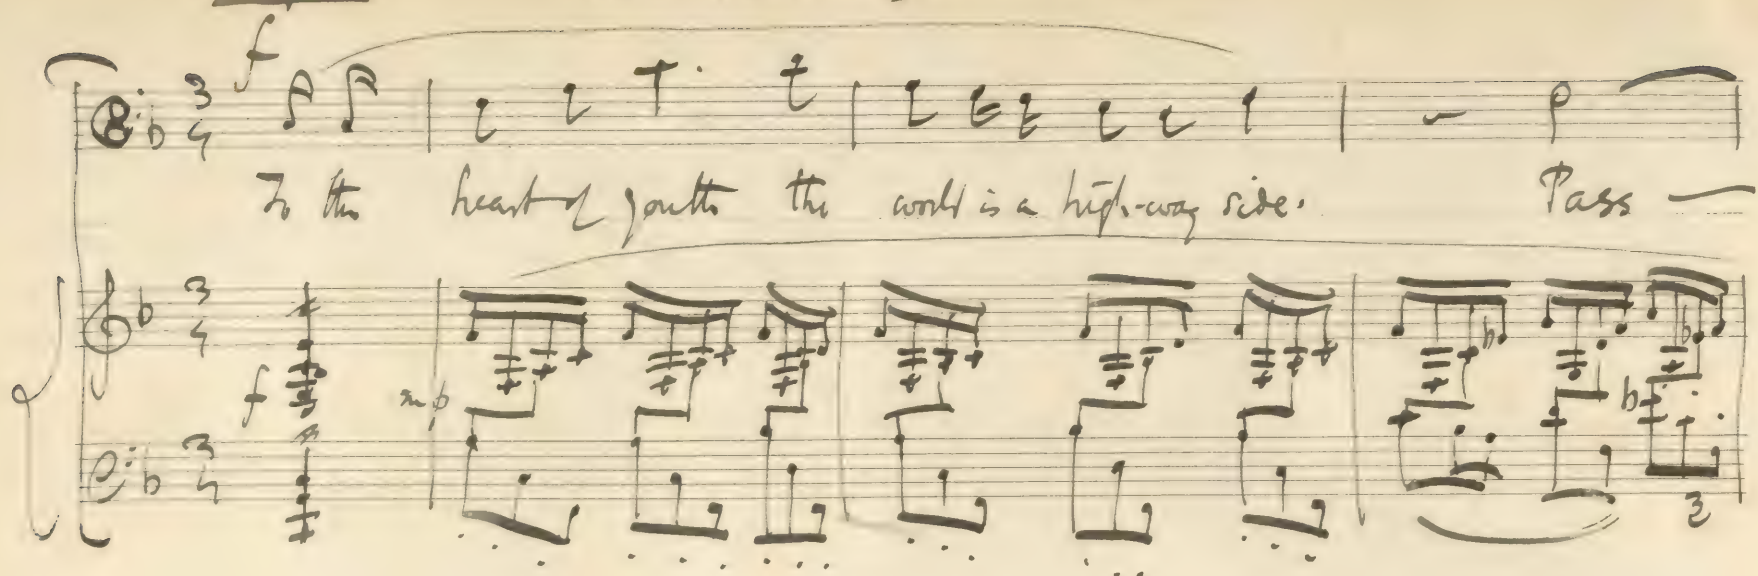 f
3
4
To the heart of youth the world is a high-way side. Pass —
3
4
f
mp
3
4
3